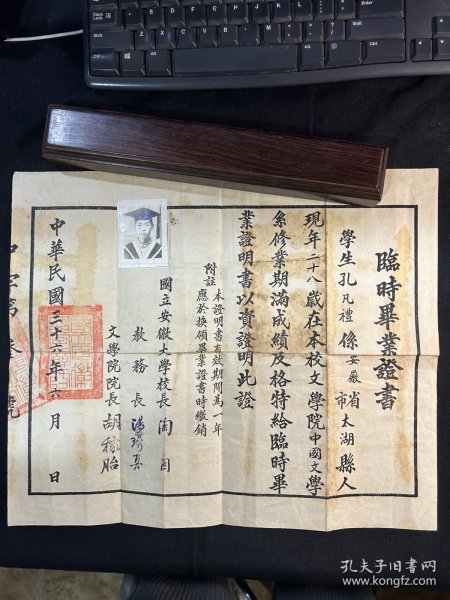 臨時畢業證書
學生孔凡禮係安徽省市太湖縣人
現年二十八歲在本校文學院中國文學
系修業期滿成績及格特給臨時畢
業證明書以資證明此證
附註 本證明書有效期間為一年
應於換領畢業證書時繳銷
國立安徽大學校長 陶因
教務長
文學院院長 胡稼胎
中華民國三十六年六月 日
字第 號
孔夫子旧书网
www.kongfz.com